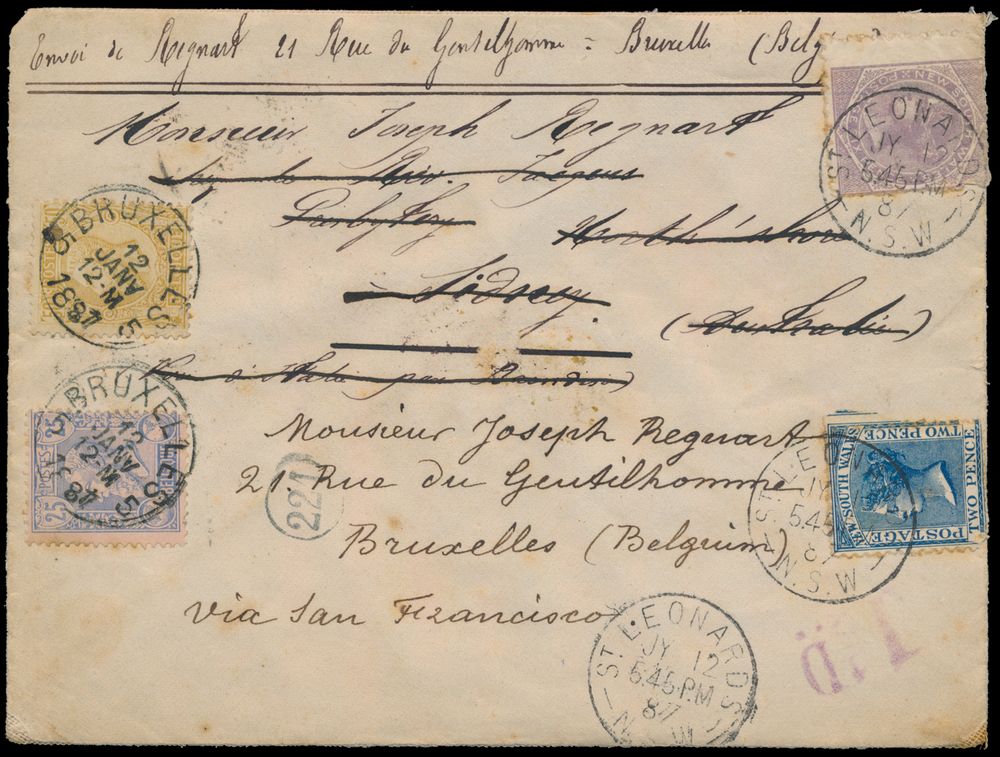 Envoi de Regnart 21 Rue du Gentilhomme = Bruxelles (Belg
Monsieur Joseph Regnart
North shore
Sidney
(Australie)
Monsieur Joseph Regnart
21 Rue du Gentilhomme
Bruxelles (Belgium)
via San Francisco
BRUXELLES 5
12
JANV
12-M
1887
5
BRUXELLES 5
12
JANV
12-M
87
5
25 POSTES 25
221
ST. LEONARDS
JY 12
5.45 PM
87
N.S.W
NEW SOU
TWO PENCE
TWO PENCE
NEW SOUTH WALES
POSTAGE
ST. LEON
JY
5.45
87
N.S.W
ST. LEONARDS
JY 12
5.45 P.M
87
N.S.W